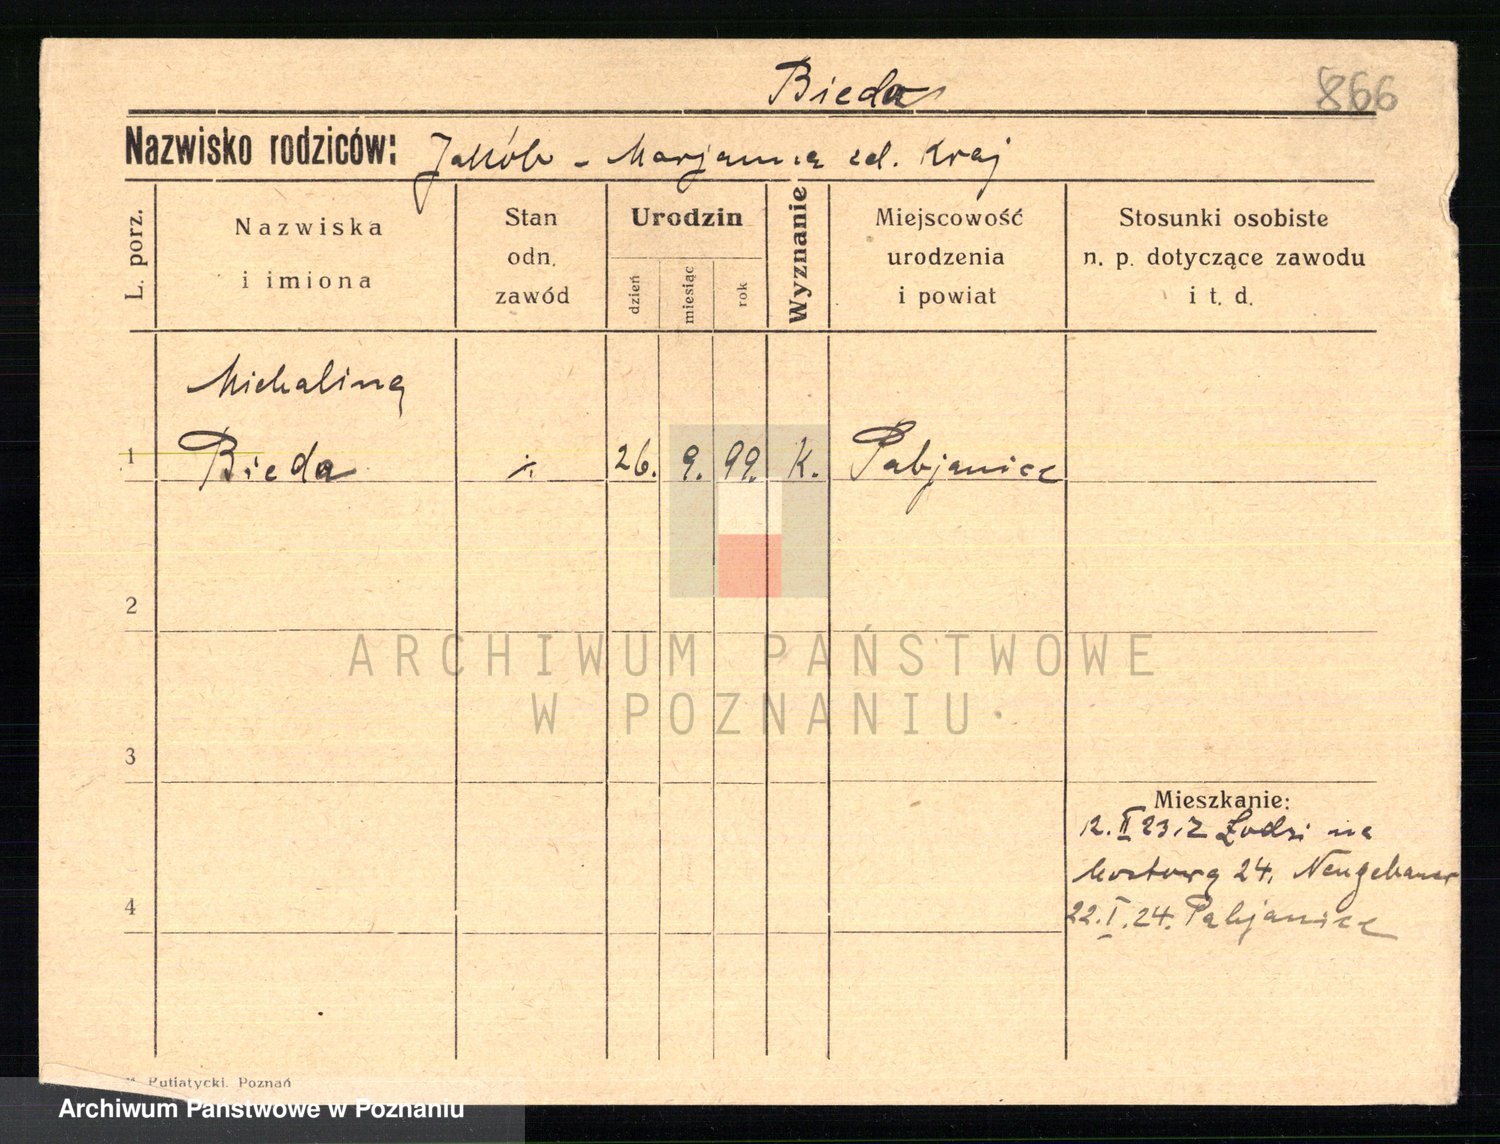 Bieda
866
Nazwisko rodziców: Jakób - Marjanna zd. Kraj
L. porz.
Nazwiska i imiona
Stan odn. zawód
Urodzin
dzień
miesiąc
rok
Wyznanie
Miejscowość urodzenia i powiat
Stosunki osobiste n. p. dotyczące zawodu i t. d.
Michalina
1 Bieda 26. 9. 99. K. Pabjanice
2
3
4
Mieszkanie:
12. II 23. z Łodzi na
Mostowa 24. Neugebauer
22. I. 24. Pabjanice
ARCHIWUM PAŃSTWOWE
W POZNANIU
Putiatycki. Poznań
Archiwum Państwowe w Poznaniu